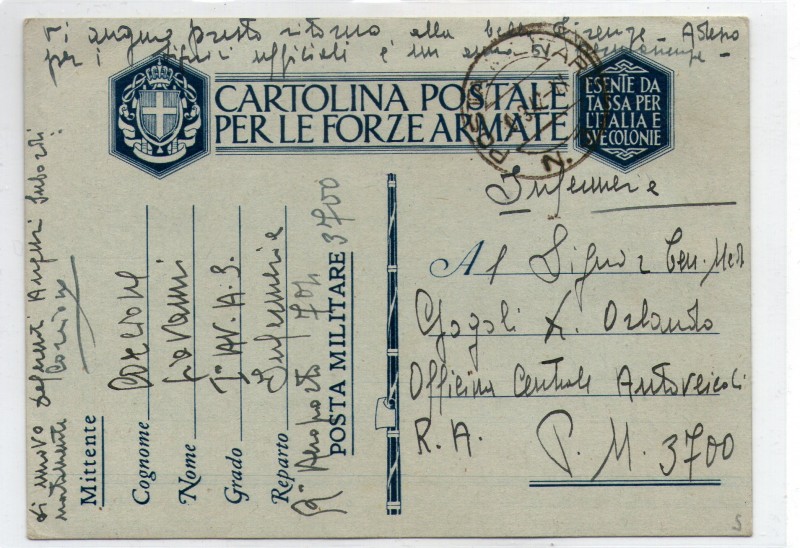 vi auguro presto ritorno alla bella Firenze - Adesso
per i ufficiali è un
CARTOLINA POSTALE
PER LE FORZE ARMATE
ESENTE DA
TASSA PER
L'ITALIA E
SVE COLONIE
POSTA N.
Infermerie
Al Signor Ten. Med
Gogoli X. Orlando
Officina Centrale Autoveicoli
R. A. P. M. 3700
Mittente
Cognome
Nome Giovanni
Grado I° AV. A. S.
Reparto Infermerie
Aeroporto 704
POSTA MILITARE 3700
di nuovo deferenti Auguri
S